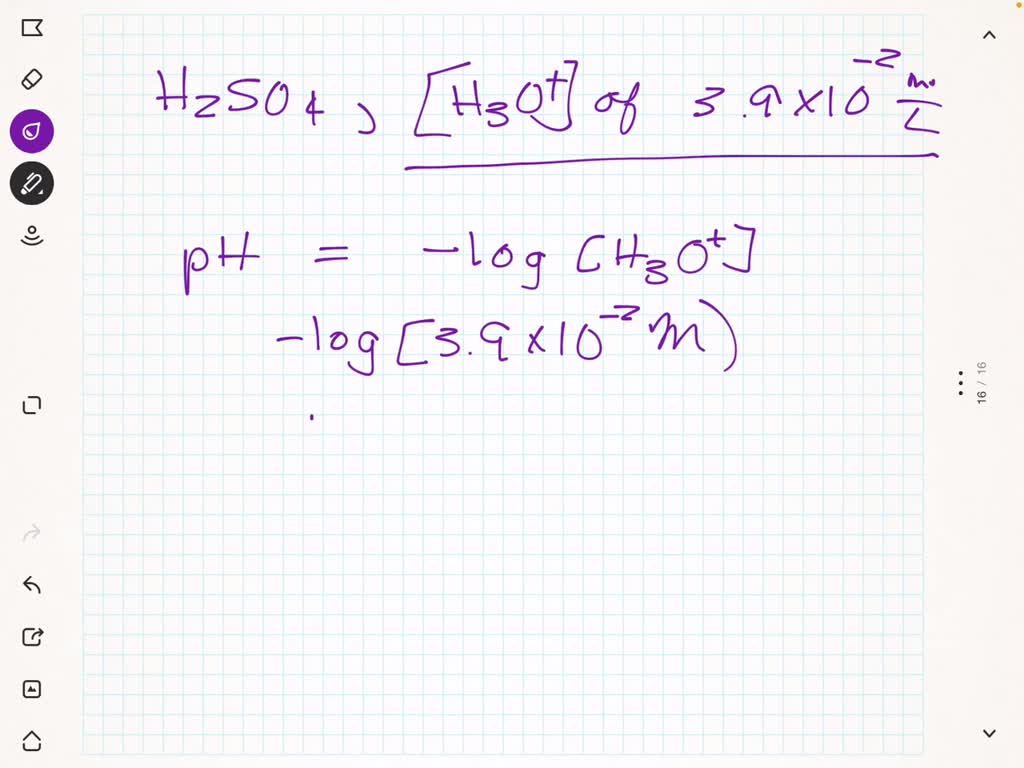 H₂SO₄, [H₃O⁺] of 3.9 x 10⁻² mo/L
pH = -log [H₃O⁺]
-log [3.9 x 10⁻² M)
.
16 / 16